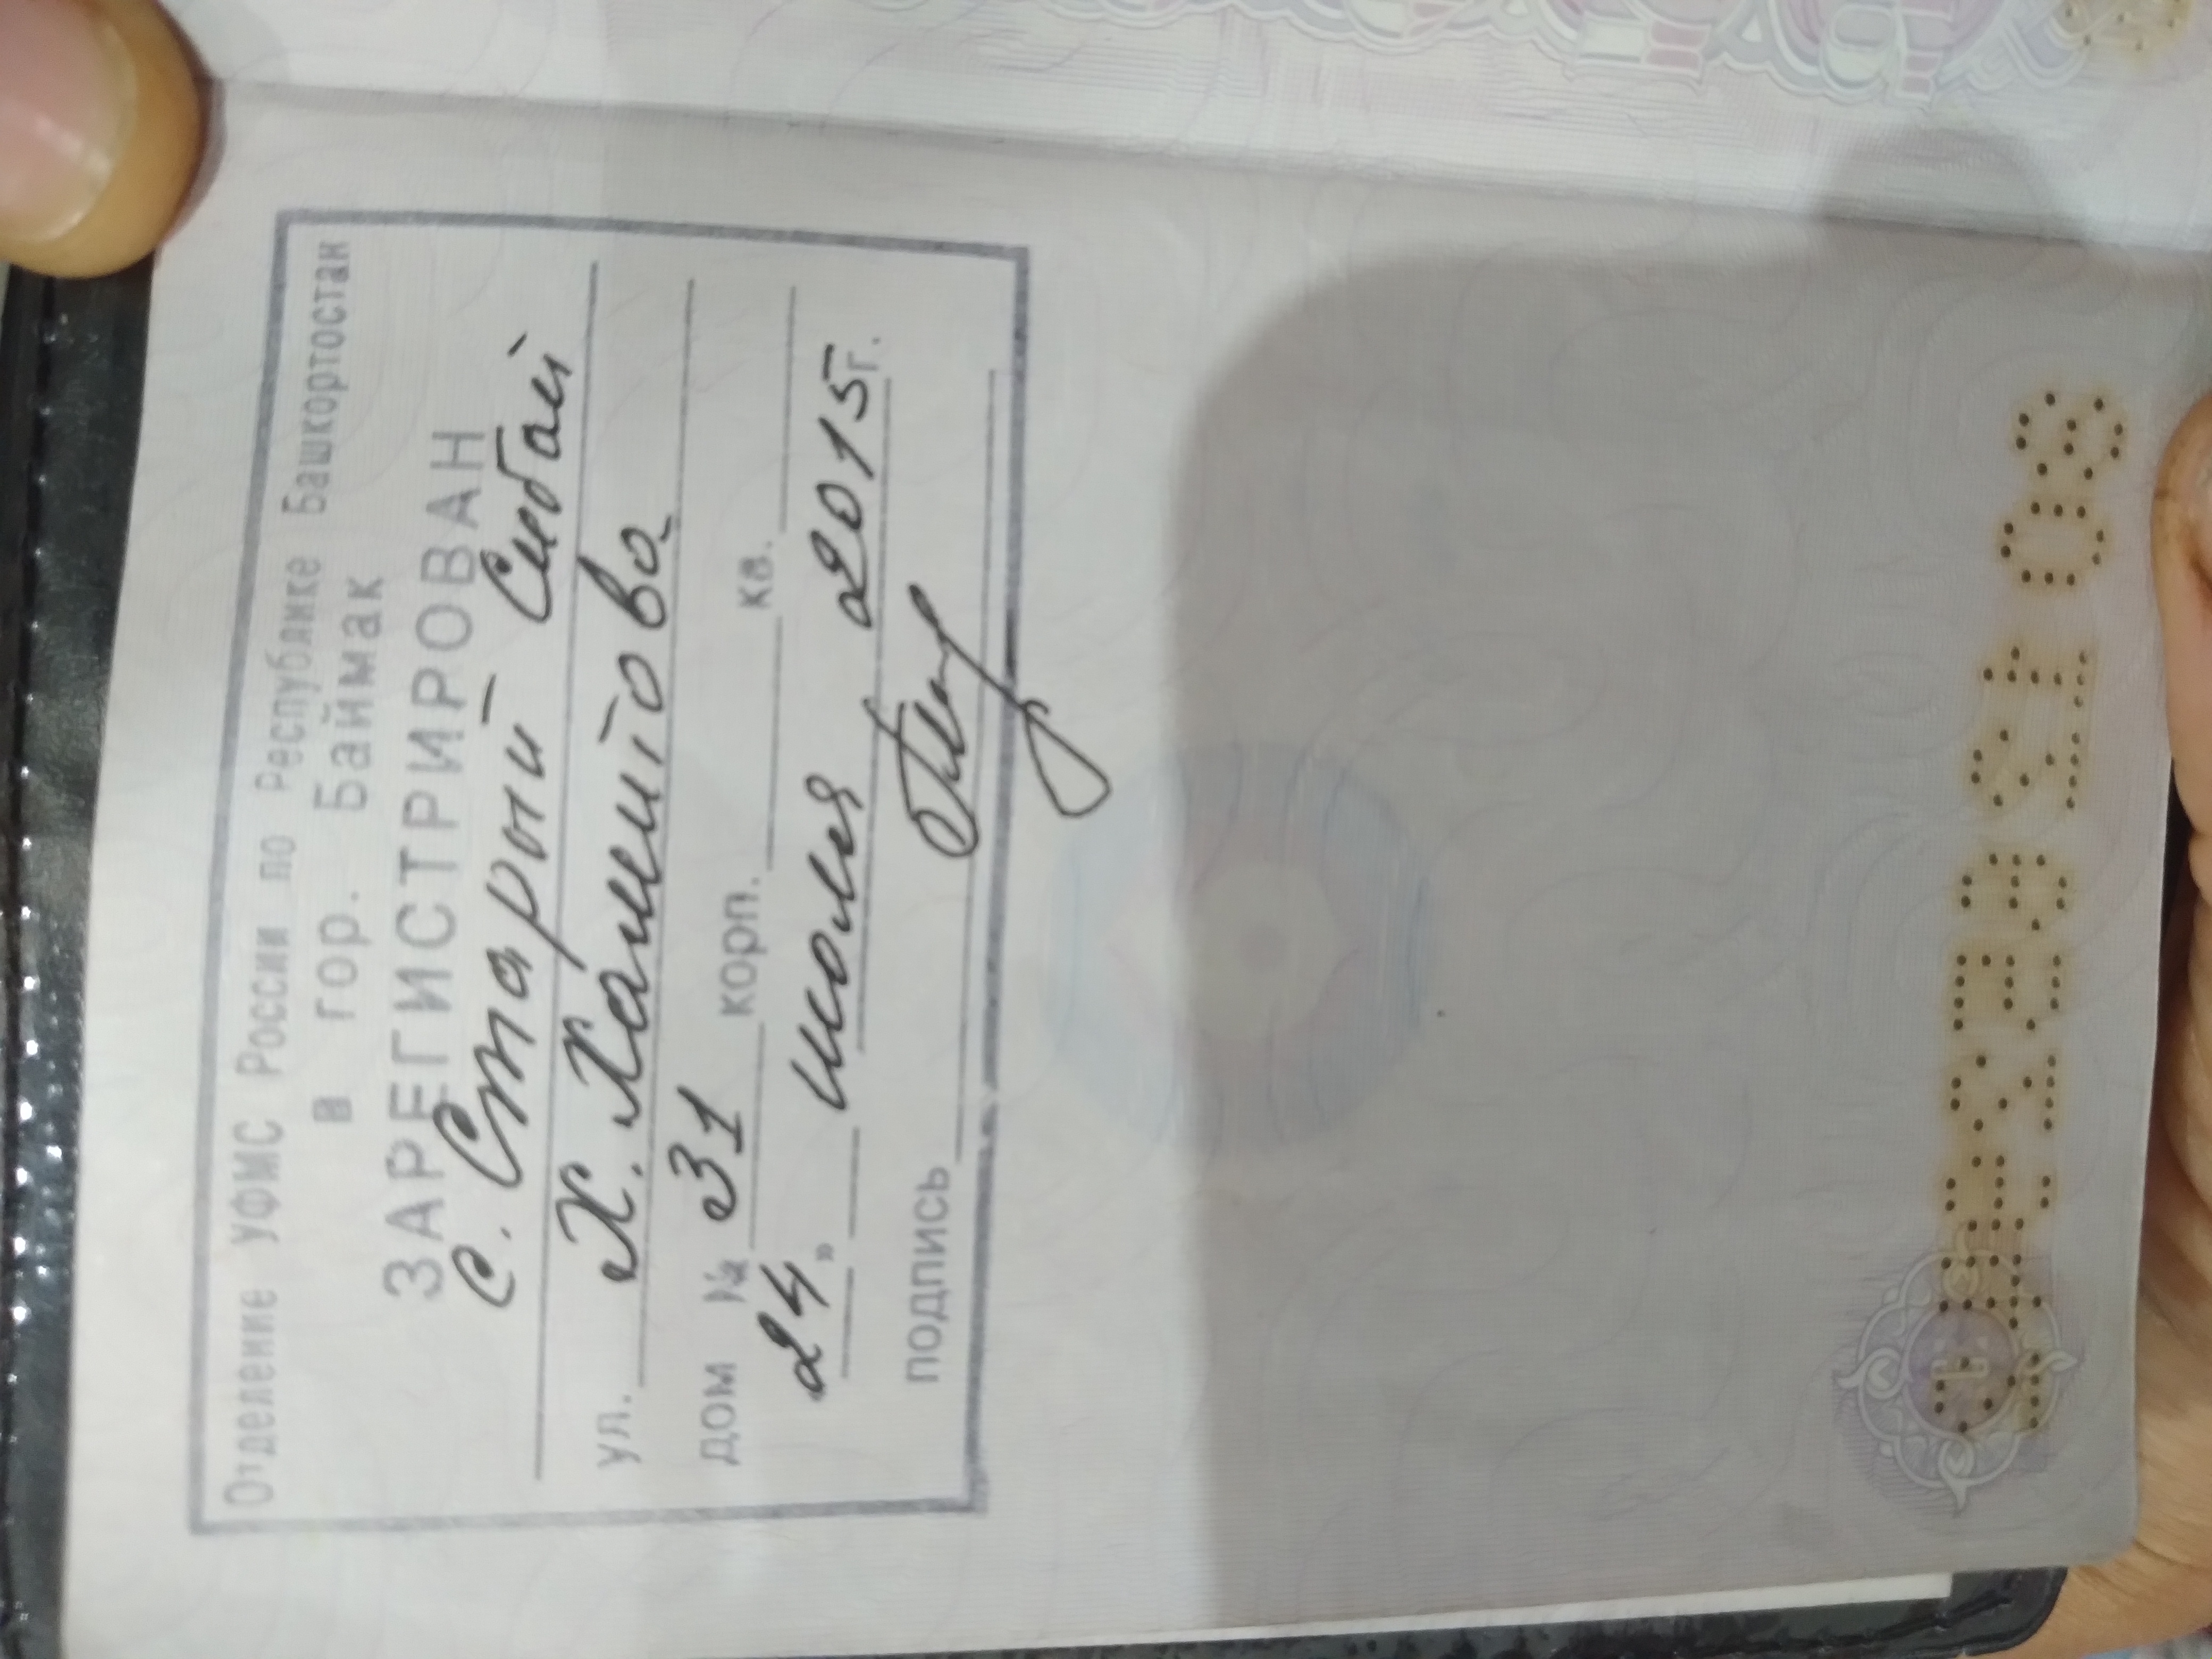 Отделение УФМС России по Республике Башкортостан
в гор. Баймак
ЗАРЕГИСТРИРОВАН
с. Старый Сибай
ул. Х. Хамитова
дом № 31 корп. кв.
24 » июля 2015 г.
подпись